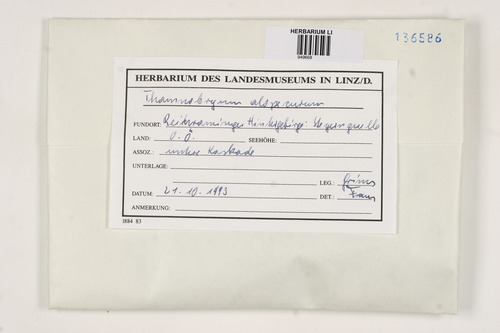 HERBARIUM LI
136586
HERBARIUM DES LANDESMUSEUMS IN LINZ/D.
Thamnobryum alopecurum
FUNDORT: Reichraminger Hintergebirge:
LAND: O.Ö. SEEHÖHE:
ASSOZ.: untere Kaskade
UNTERLAGE:
LEG.: Grims
DATUM: 21.10.1993 DET.:
ANMERKUNG:
I884 83